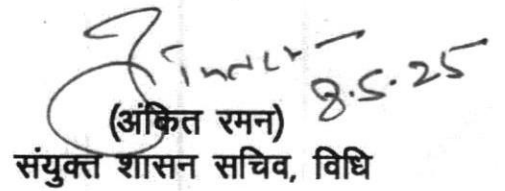 8.5.25
(अंकित रमन)
संयुक्त शासन सचिव, विधि